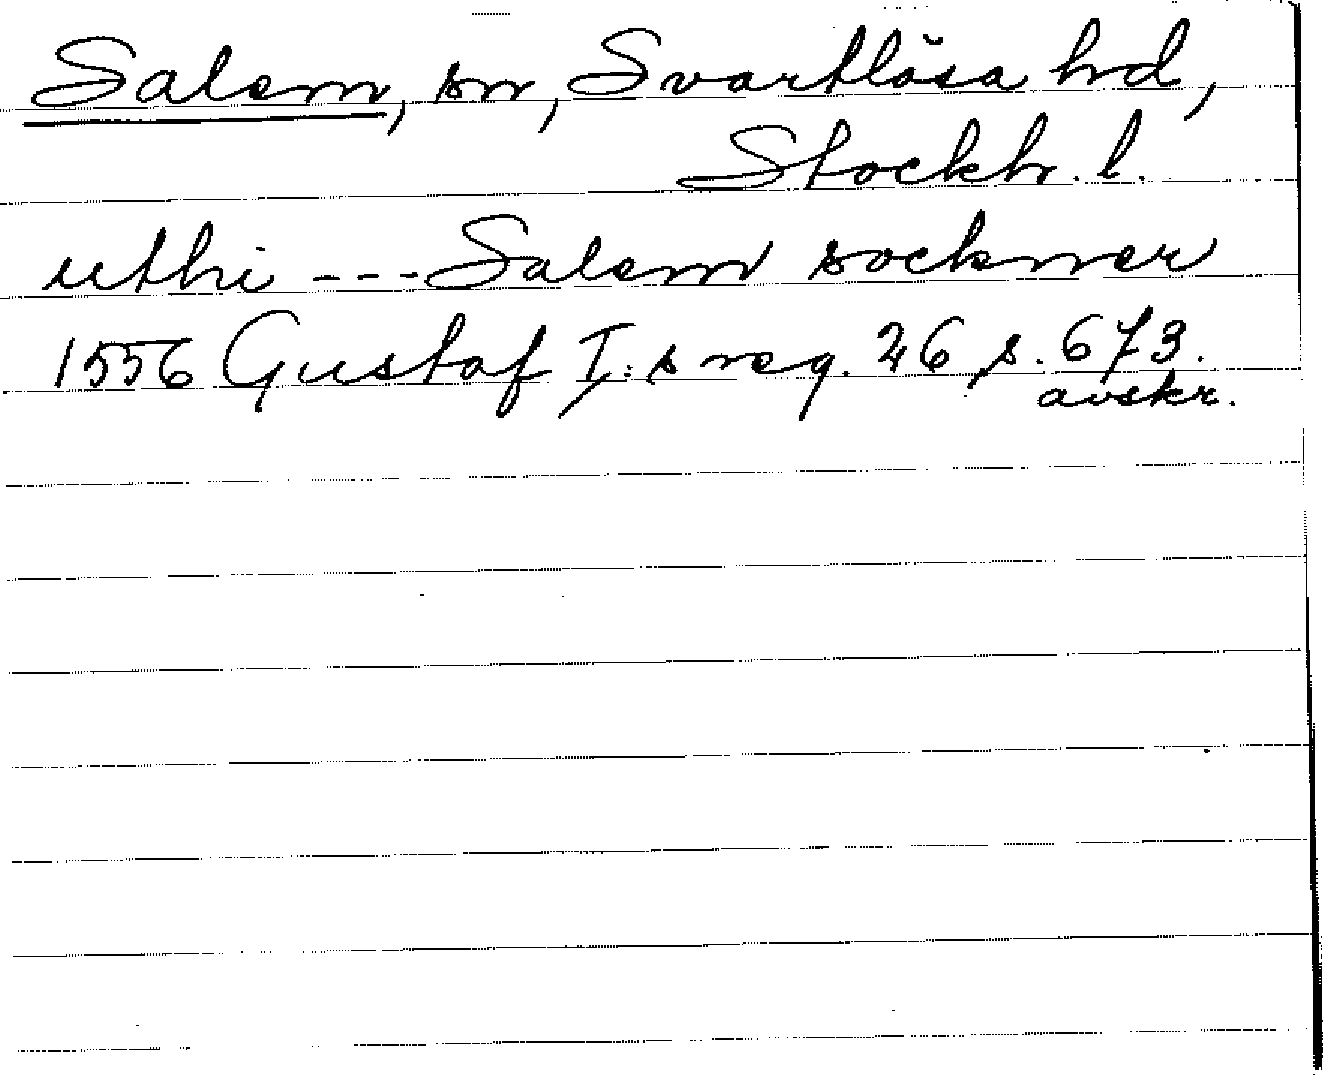 Salem, sn, Svartlösa hd,
Stockh. l.
uthi --- Salem socknner
1556 Gustaf I:s reg. 26 s. 673.
avskr.